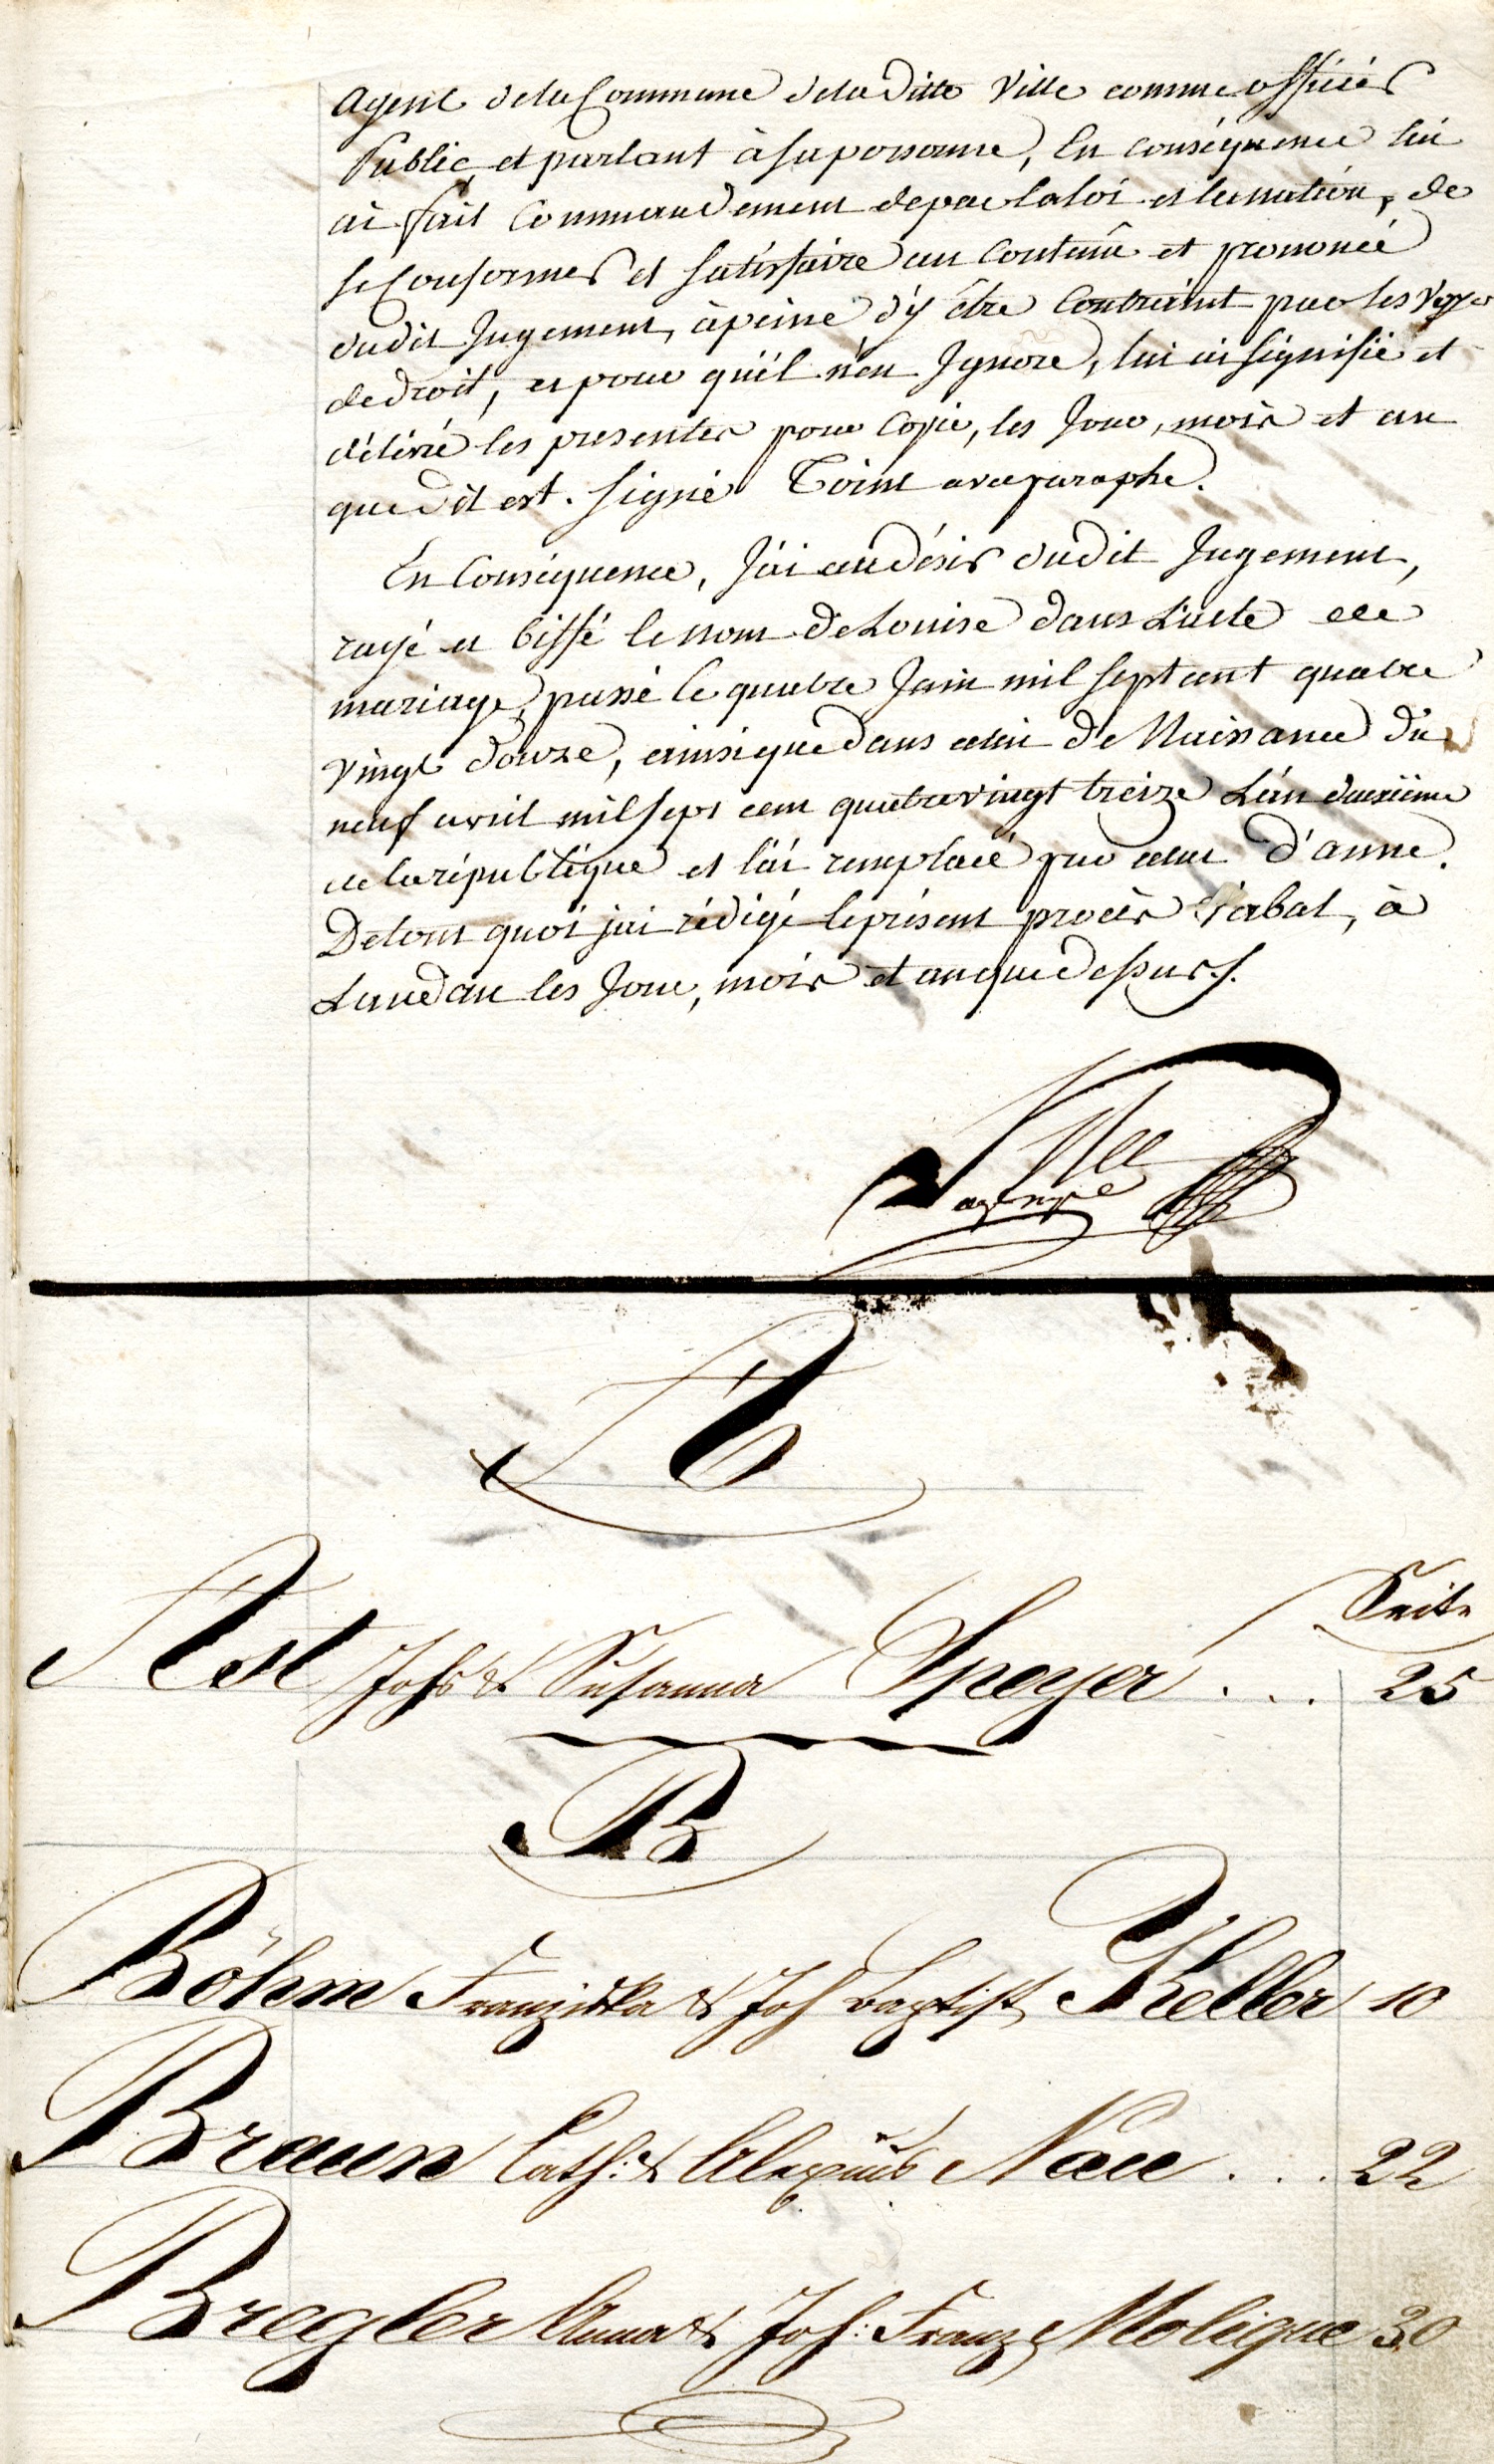 agent de la Commune de la ditte Ville comme officier
Public, et parlant à sa personne, En conséquence lui
ai fait Commandement de par la loi et la nation, de
se Conformer et satisfaire au Contenû et prononcé
dudit Jugement, à peine d'y être Contraint par les Voyes
de droit, et pour qu'il n'en Ignore, lui ai signifié et
délivré les presentes pour Copie, les Jour, mois et an
que dit est. signé Toint avec paraphe.
En Conséquence, J'ai au désir dudit Jugement,
rayé et biffé le nom de Louise dans L'acte de
mariage, passé le quatre Juin mil sept cent quatre
vingt douze, ainsi que dans celui de Naissance du
neuf avril mil sept cent quatre vingt treize L'an deuxième
de la république et l'ai remplacé par celui d'anne.
De tout quoi j'ai rédigé le présent procès verbal, à
Landau les Jour, mois et an que dessus ./.
A
Seite
Ast Johs & Susanna Speyer . . . 25
B
Böhm Franziska & Joh Baptist Keller 10
Braun Cath: & Alexius Nau . . . 22
Bregler Anna & Joh: Franz Molique 30